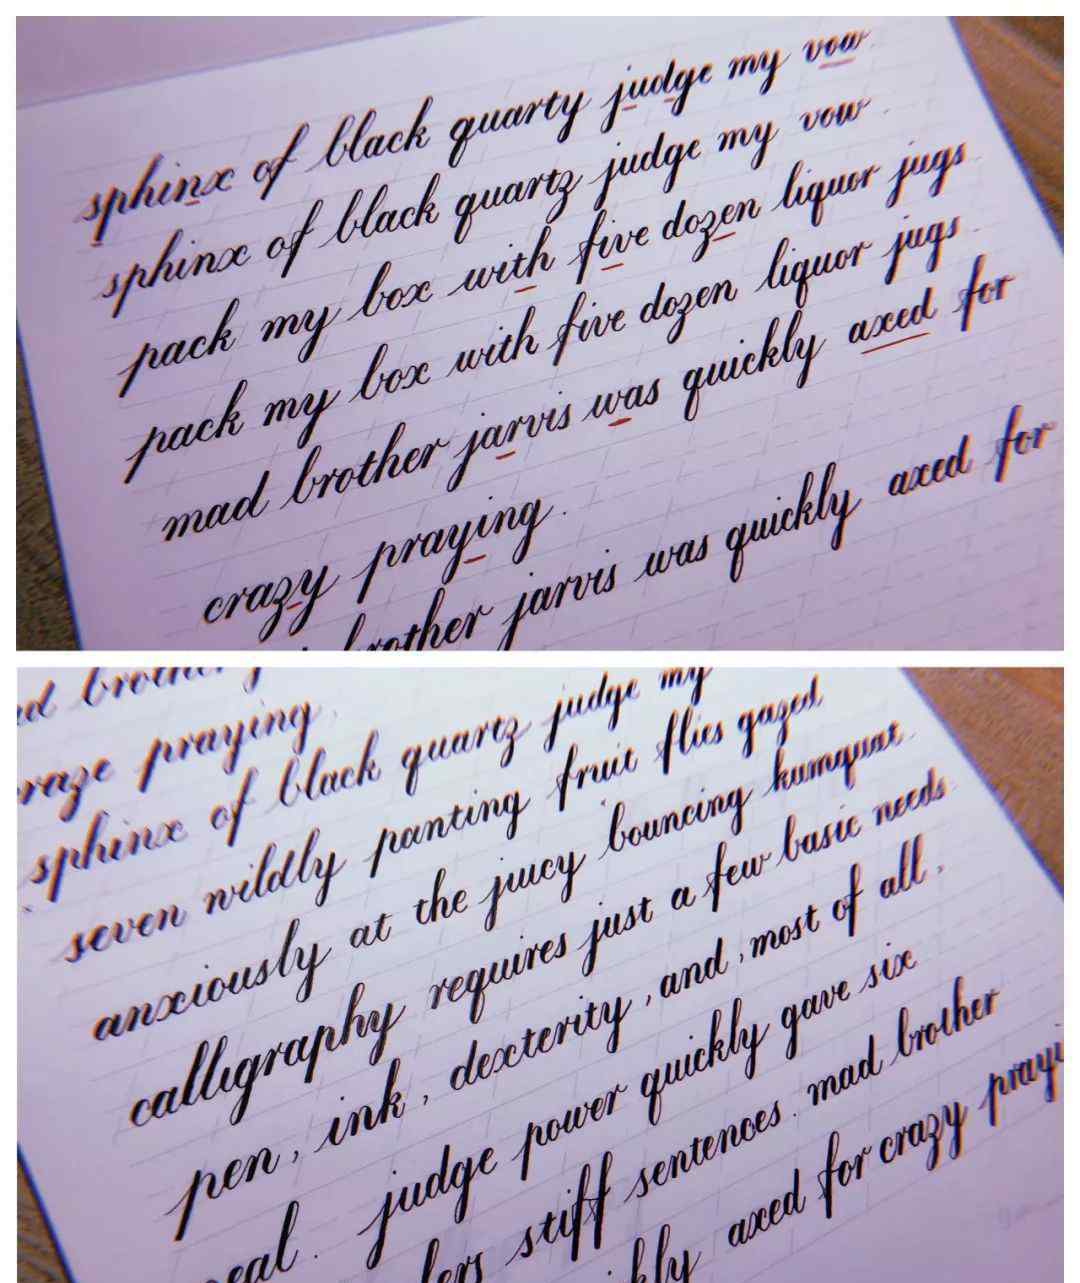 sphinx of black quarty judge my vow
sphinx of black quartz judge my vow.
pack my box with five dozen liquor jugs.
pack my box with five dozen liquor jugs.
mad brother jarvis was quickly axed for
crazy praying.
brother jarvis was quickly axed for
praying.
sphinx of black quartz judge my
seven wildly panting fruit flies gazed
anxiously at the juicy bouncing kumquat.
calligraphy requires just a few basic needs.
pen, ink, dexterity, and, most of all,
judge power quickly gave six
stiff sentences. mad brother
axed for crazy